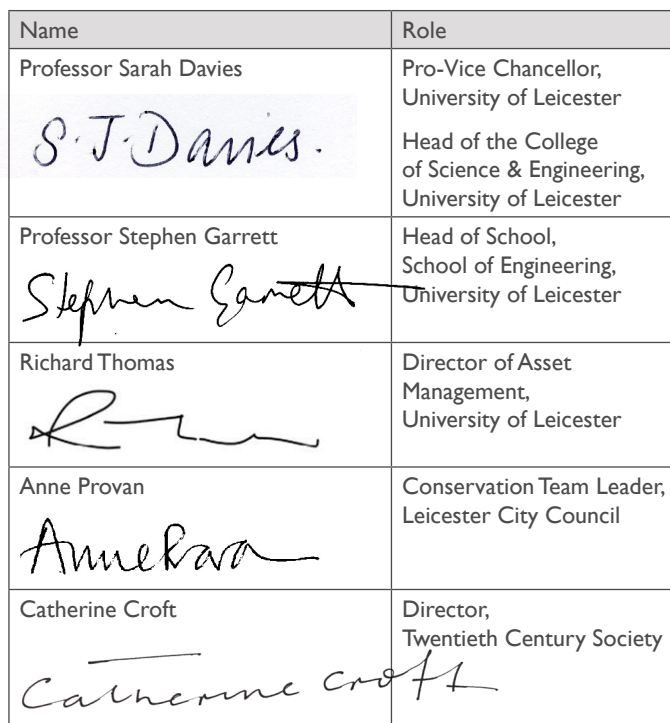 Name
Role
Professor Sarah Davies
S.J.Davies.
Pro-Vice Chancellor,
University of Leicester
Head of the College
of Science & Engineering,
University of Leicester
Professor Stephen Garrett
Stephen Garrett
Head of School,
School of Engineering,
University of Leicester
Richard Thomas
Director of Asset
Management,
University of Leicester
Anne Provan
Anne Provan
Conservation Team Leader,
Leicester City Council
Catherine Croft
Catherine Croft
Director,
Twentieth Century Society